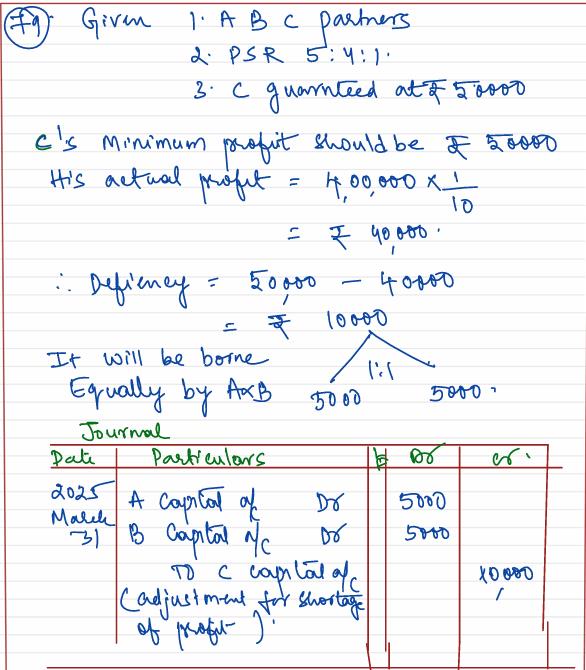 79. Given 1. A B C partners
2. PSR 5:4:1.
3. C guarnteed at ₹ 50000
C's minimum profit should be ₹ 50000
His actual profit = 4,00,000 × 1/10
= ₹ 40,000.
∴ Defiency = 50,000 - 40000
= ₹ 10000
It will be borne
Equally by A&B 5000 1:1 5000.
Journal
Date Particulars Dr cr.
2025 A Capital a/c Dr 5000
March B Capital a/c Dr 5000
31 To C capital a/c 10,000
(adjustment for shortage
of profit).